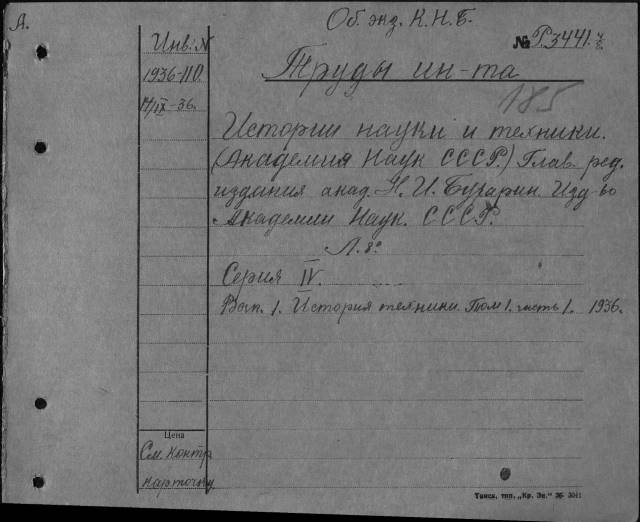 А.
Об. экз. К.Н.Б.
№ Р.3441.
Инв. N
1936-110.
14/IX-36.
Труды ин-та
185
Истории науки и техники.
(Академия Наук СССР.) Глав. ред.
издания акад. Н. И. Бухарин. Изд-во
Академии Наук. СССР.
Л. 8°
Серия IV.
Вып. 1. История техники. Том 1. часть 1. 1936.
Цена
См. контр.
карточку.
Тип. „Кр. Зн.“ 36